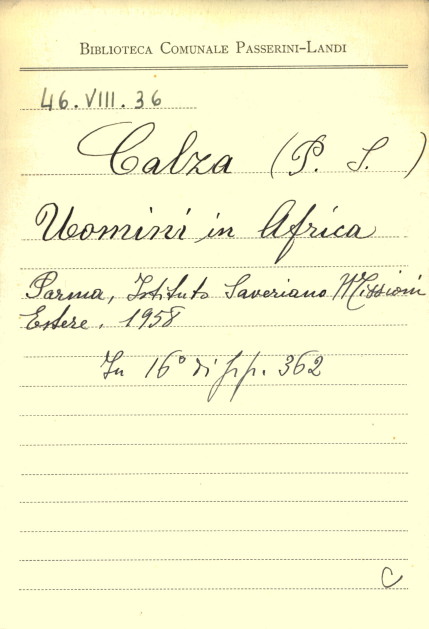 BIBLIOTECA COMUNALE PASSERINI-LANDI
46.VIII.36
Calza (P. S.)
Uomini in Africa
Parma, Istituto Saveriano Missioni
Estere, 1958
In 16° di pp. 362
C